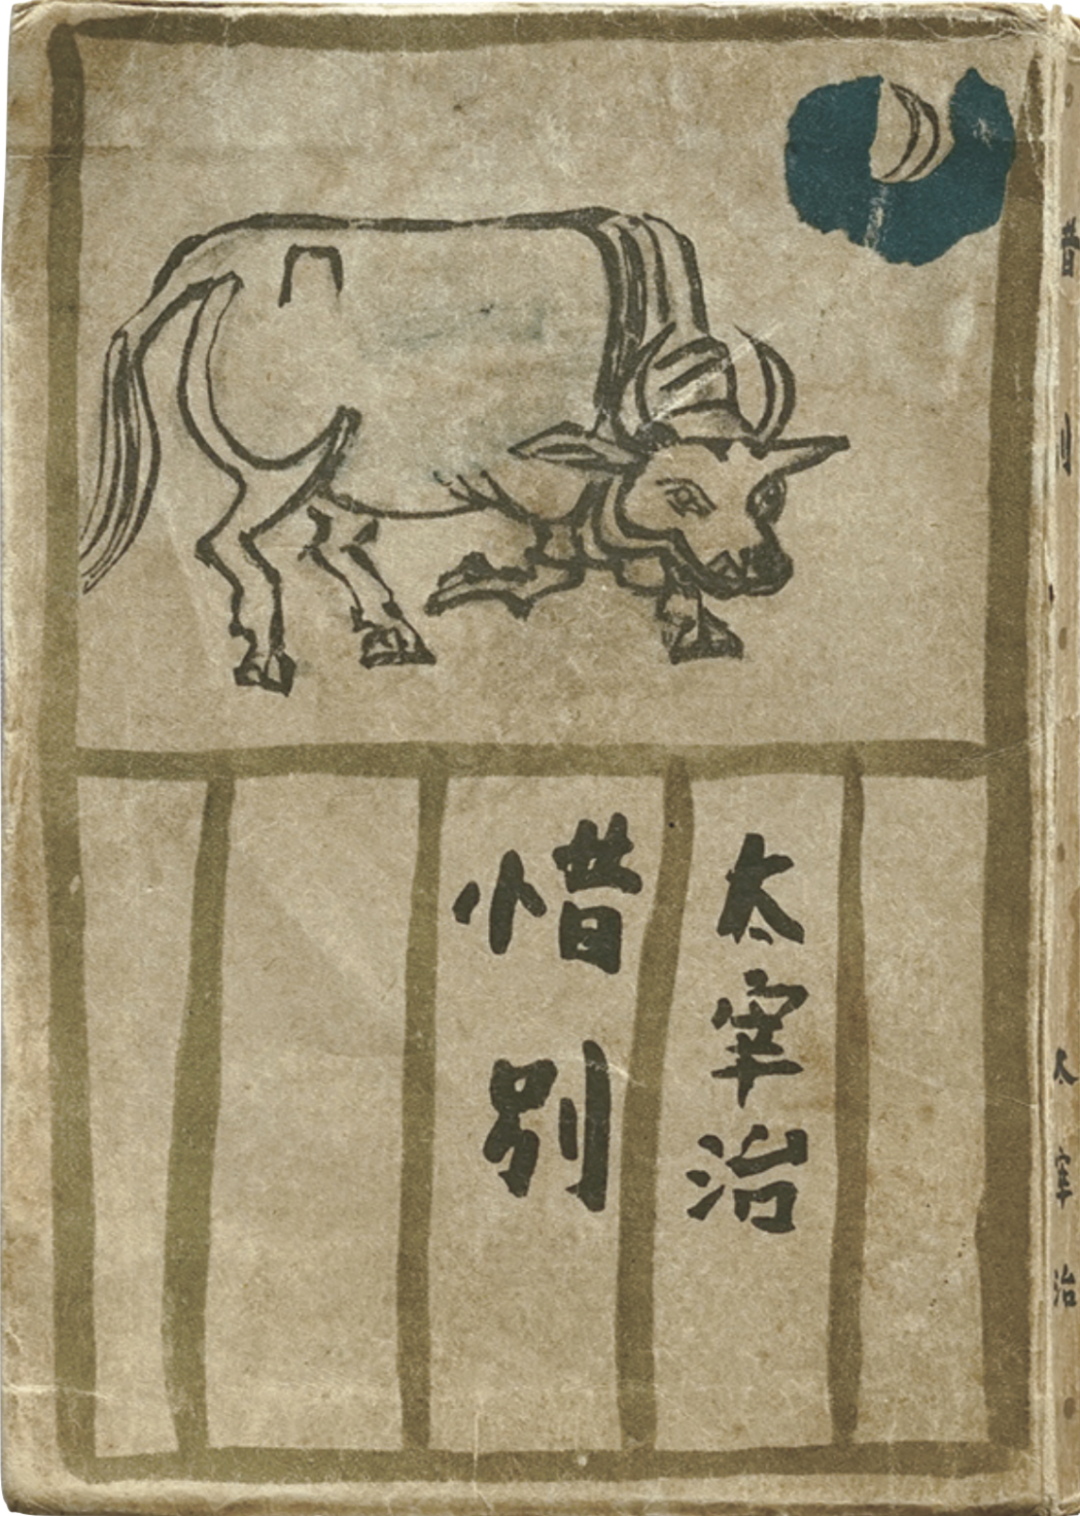 太宰治
惜別
惜別
太宰治